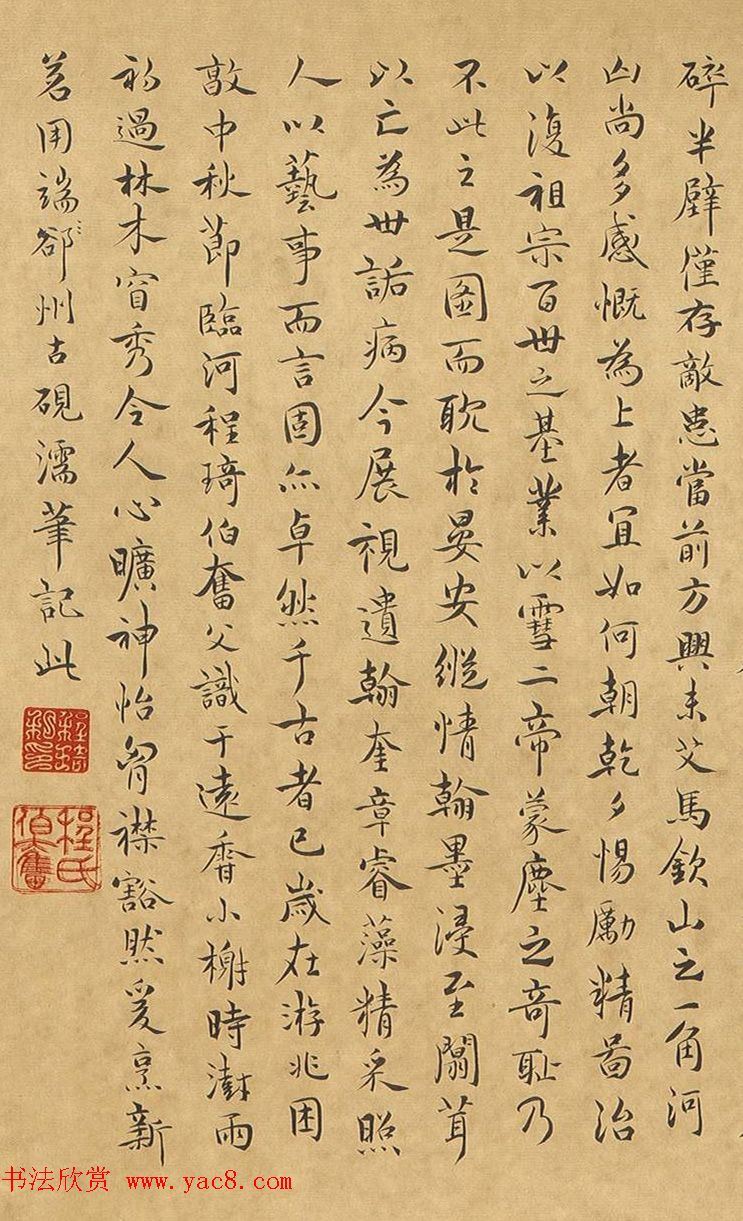 碎半壁僅存敵患當前方興未艾馬欽山之一角河
山尚多感慨為上者宜如何朝乾夕惕勵精圖治
以復祖宗百世之基業以雪二帝蒙塵之奇恥乃
不此之是圖而耽於晏安縱情翰墨浸至闒茸
以亡為世詬病今展視遺翰奎章睿藻精采照
人以藝事而言固亦卓然千古者已歲在游兆困
敦中秋節臨河程琦伯奮父識于遠香小榭時澍雨
初過林木窅秀令人心曠神怡胷襟豁然爰烹新
茗用端郤州古硯濡筆記此
程琦
程氏伯奮
书法欣赏 www.yac8.com